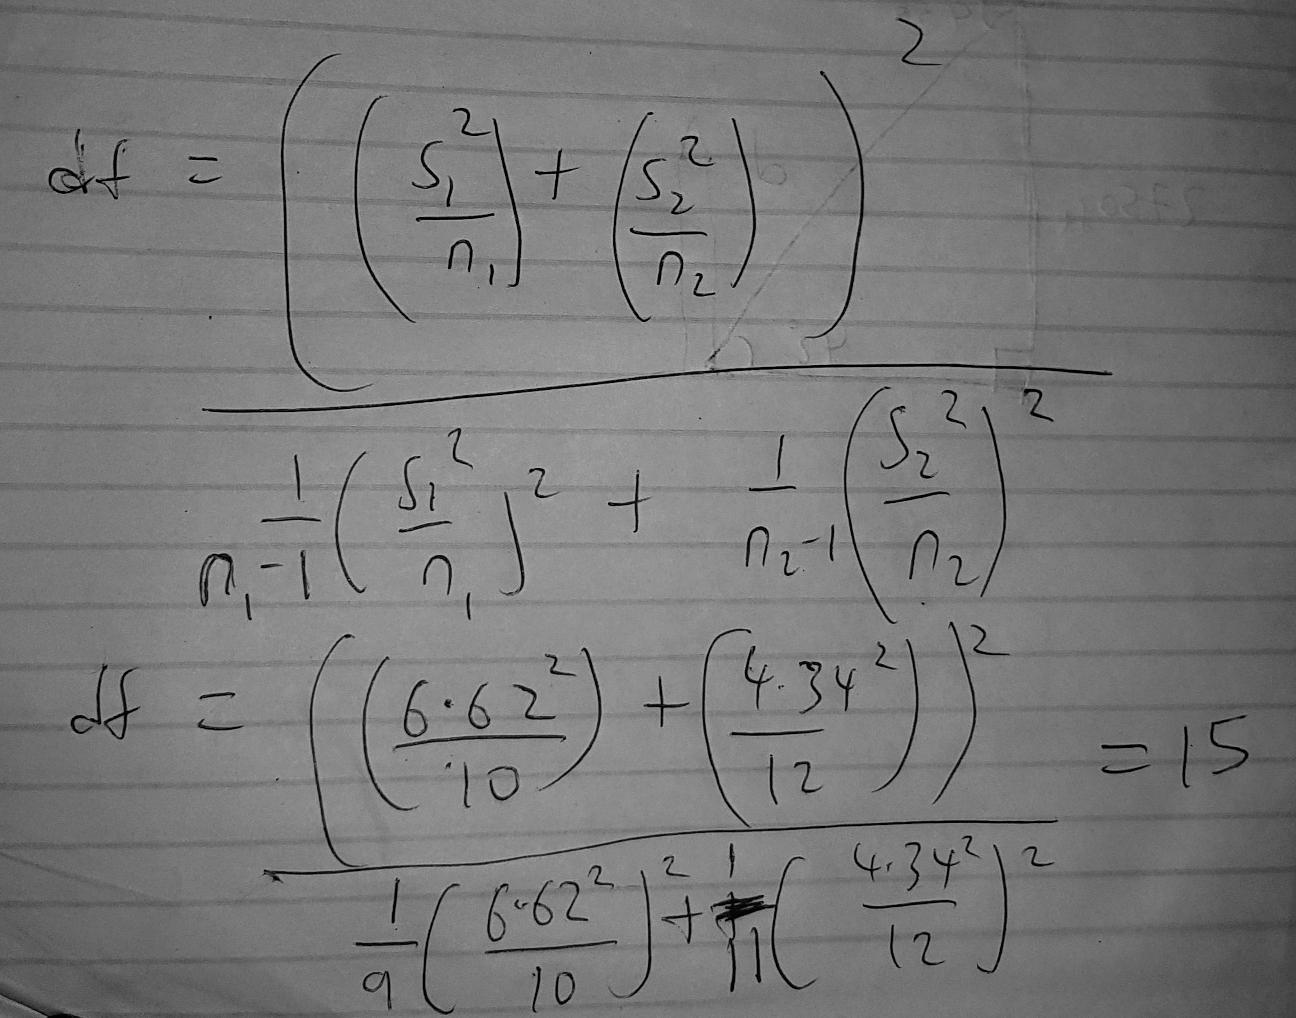 df = ((s₁²/n₁) + (s₂²/n₂))² / (1/(n₁-1) (s₁²/n₁)² + 1/(n₂-1) (s₂²/n₂)²)
df = ((6.62²/10) + (4.34²/12))² / (1/9 (6.62²/10)² + 1/11 (4.34²/12)²) = 15